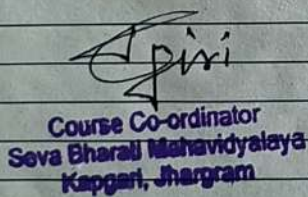 Giri
Course Co-ordinator
Seva Bharati Mahavidyalaya
Kapgari, Jhargram